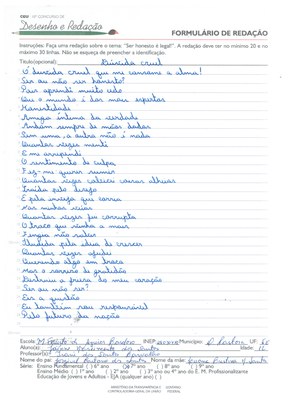 CGU
Desenho e Redação
FORMULÁRIO DE REDAÇÃO
Instruções: Faça uma redação sobre o tema: "Ser honesto é legal!". A redação deve ter no mínimo 20 e no
máximo 30 linhas. Não se esqueça de preencher a identificação.
Título(opcional): Dúvida cruel
Ó dúvida cruel que me consome a alma!
Ser ou não ser honesto?
Pois aprendi muito cedo
Que o mundo é dos mais espertos
Honestidade
Amiga íntima da verdade
Andam sempre de mãos dadas
Sem uma, a outra não é nada
Quantas vezes menti
E me arrependi
O sentimento de culpa
Fez-me querer sumir
Quantas vezes cobicei coisas alheias
Traída pelo desejo
E pela inveja que corria
Nas minhas veias
Quantas vezes fui corrupta
O troco que vinha a mais
Fingia não notar
Iludida pela ideia de crescer
Quantas vezes ajudei
Querendo algo em troca
Mas o sorriso de gratidão
Derreteu a frieza do meu coração
Ser ou não ser?
Eis a questão
Eu também sou responsável
Pelo futuro da nação
Escola: INEP: Município: UF:
Aluno(a): dos Santos Idade:
Professor(a): dos Santos
Nome do pai: Nome da mãe:
Série: Ensino Fundamental ( ) 6º ano ( ) 7º ano ( ) 8º ano ( ) 9º ano
Ensino Médio ( ) 1º ano ( ) 2º ano ( ) 3º ano ou 4º ano do E. M. Profissionalizante
Educação de Jovens e Adultos - EJA